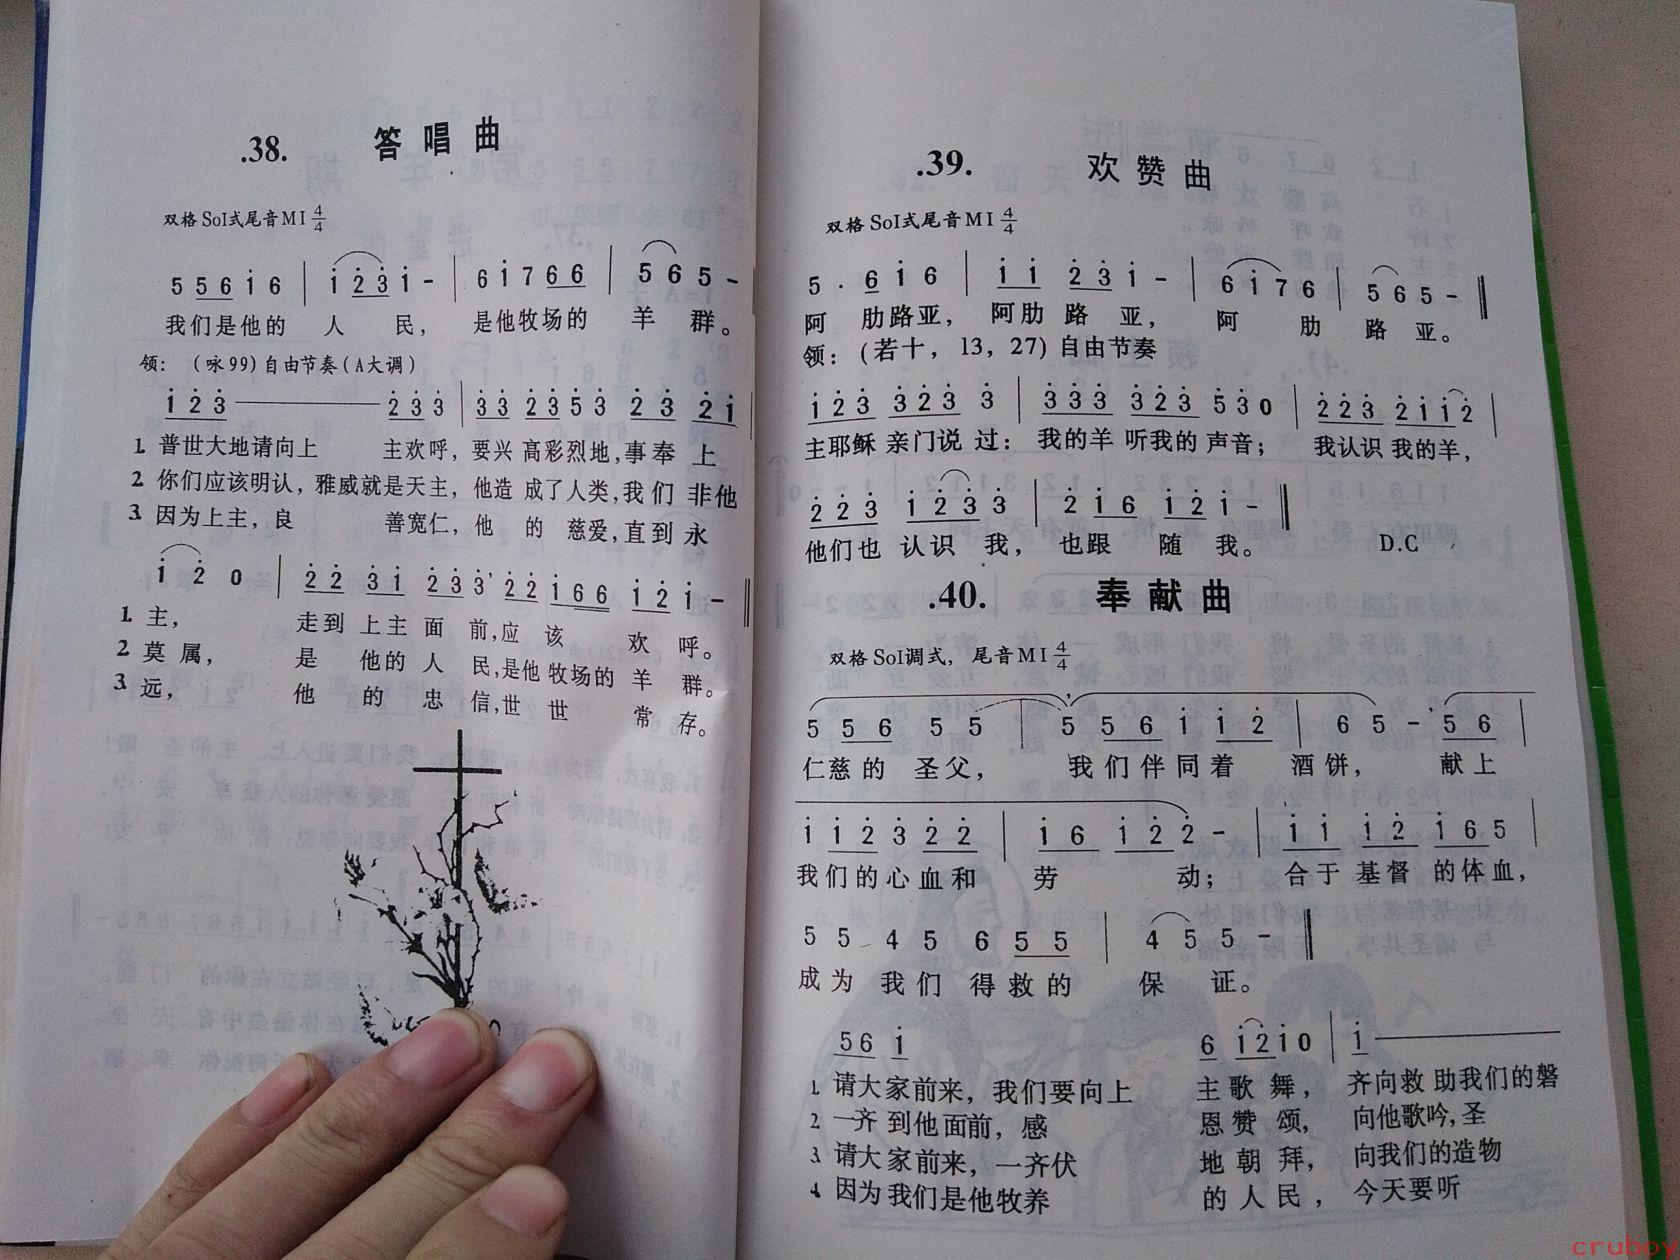 .38. 答唱曲
双格 Sol式尾音MI 4/4
5 5 6 i 6 | i 2 3 i - | 6 i 7 6 6 | 5 6 5 -
我们是他的 人 民, 是他牧场的 羊 群。
领: (咏99)自由节奏(A大调)
i 2 3 —— 2 3 3 | 3 3 2 3 5 3 2 3 2 i
1. 普世大地请向上 主欢呼,要兴高彩烈地,事奉 上
2 你们应该明认,雅威就是天主,他造 成了人类,我们 非他
3. 因为上主,良 善宽仁,他 的 慈爱,直到永
i 2 0 | 2 2 3 i 2 3 3' 2 2 i 6 6 i 2 i -
1. 主, 走到 上主 面 前,应 该 欢 呼。
2 莫属, 是 他的 人 民,是他 牧场的 羊 群。
3. 远, 他 的 忠 信,世 世 常 存。
.39. 欢赞曲
双格 Sol式尾音MI 4/4
5 . 6 i 6 | i i 2 3 i - | 6 i 7 6 | 5 6 5 -
阿 肋路亚, 阿肋 路 亚, 阿 肋 路 亚。
领: (若十, 13, 27) 自由节奏
i 2 3 3 2 3 3 | 3 3 3 3 2 3 5 3 0 | 2 2 3 2 i i 2
主耶稣 亲门说 过: 我的羊 听我的 声音; 我认识 我的羊,
2 2 3 i 2 3 3 | 2 i 6 i 2 i -
他们也 认识 我, 也跟 随 我。 D.C
.40. 奉献曲
双格 Sol调式, 尾音MI 4/4
5 5 6 5 5 | 5 5 6 i i 2 | 6 5 -' 5 6
仁慈的 圣父, 我们伴同着 酒饼, 献上
i i 2 3 2 2 | i 6 i 2 2 - | i i i 2 i 6 5
我们的心血和 劳 动; 合于 基督 的体血,
5 5 4 5 6 5 5 | 4 5 5 -
成为 我们 得救的 保 证。
5 6 i 6 i 2 i 0 | i ——
1. 请大家前来,我们要向上 主歌舞, 齐向救 助我们的磐
2 一齐 到他面前,感 恩赞颂, 向他歌吟,圣
3. 请大家前来,一齐伏 地朝拜, 向我们的造物
4. 因为我们是他牧养 的人民, 今天要听
cruboy